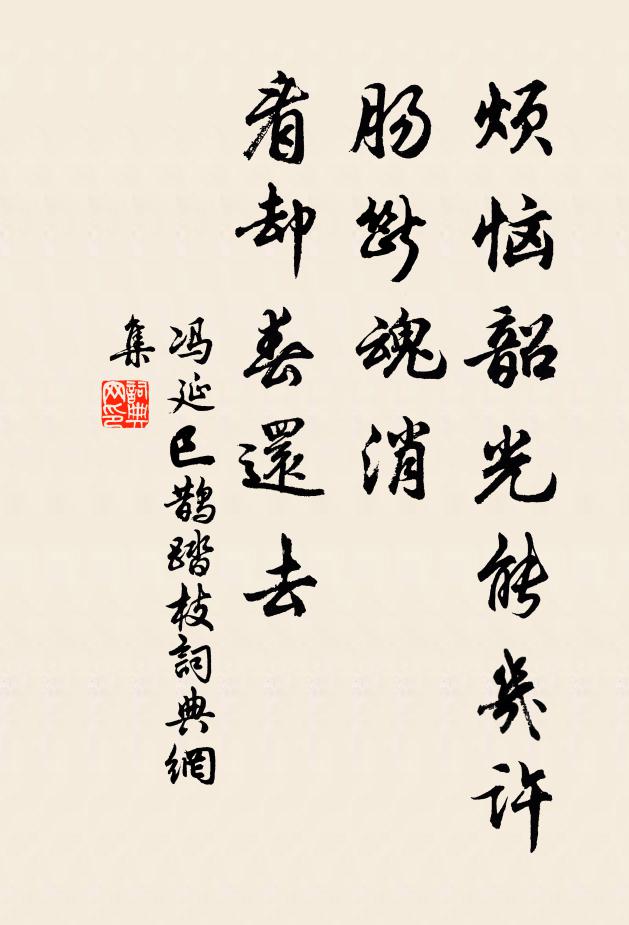 烦恼韶光能幾许
肠断魂消
看却春還去
冯延巳鹊踏枝詞典網
集
詞典网印